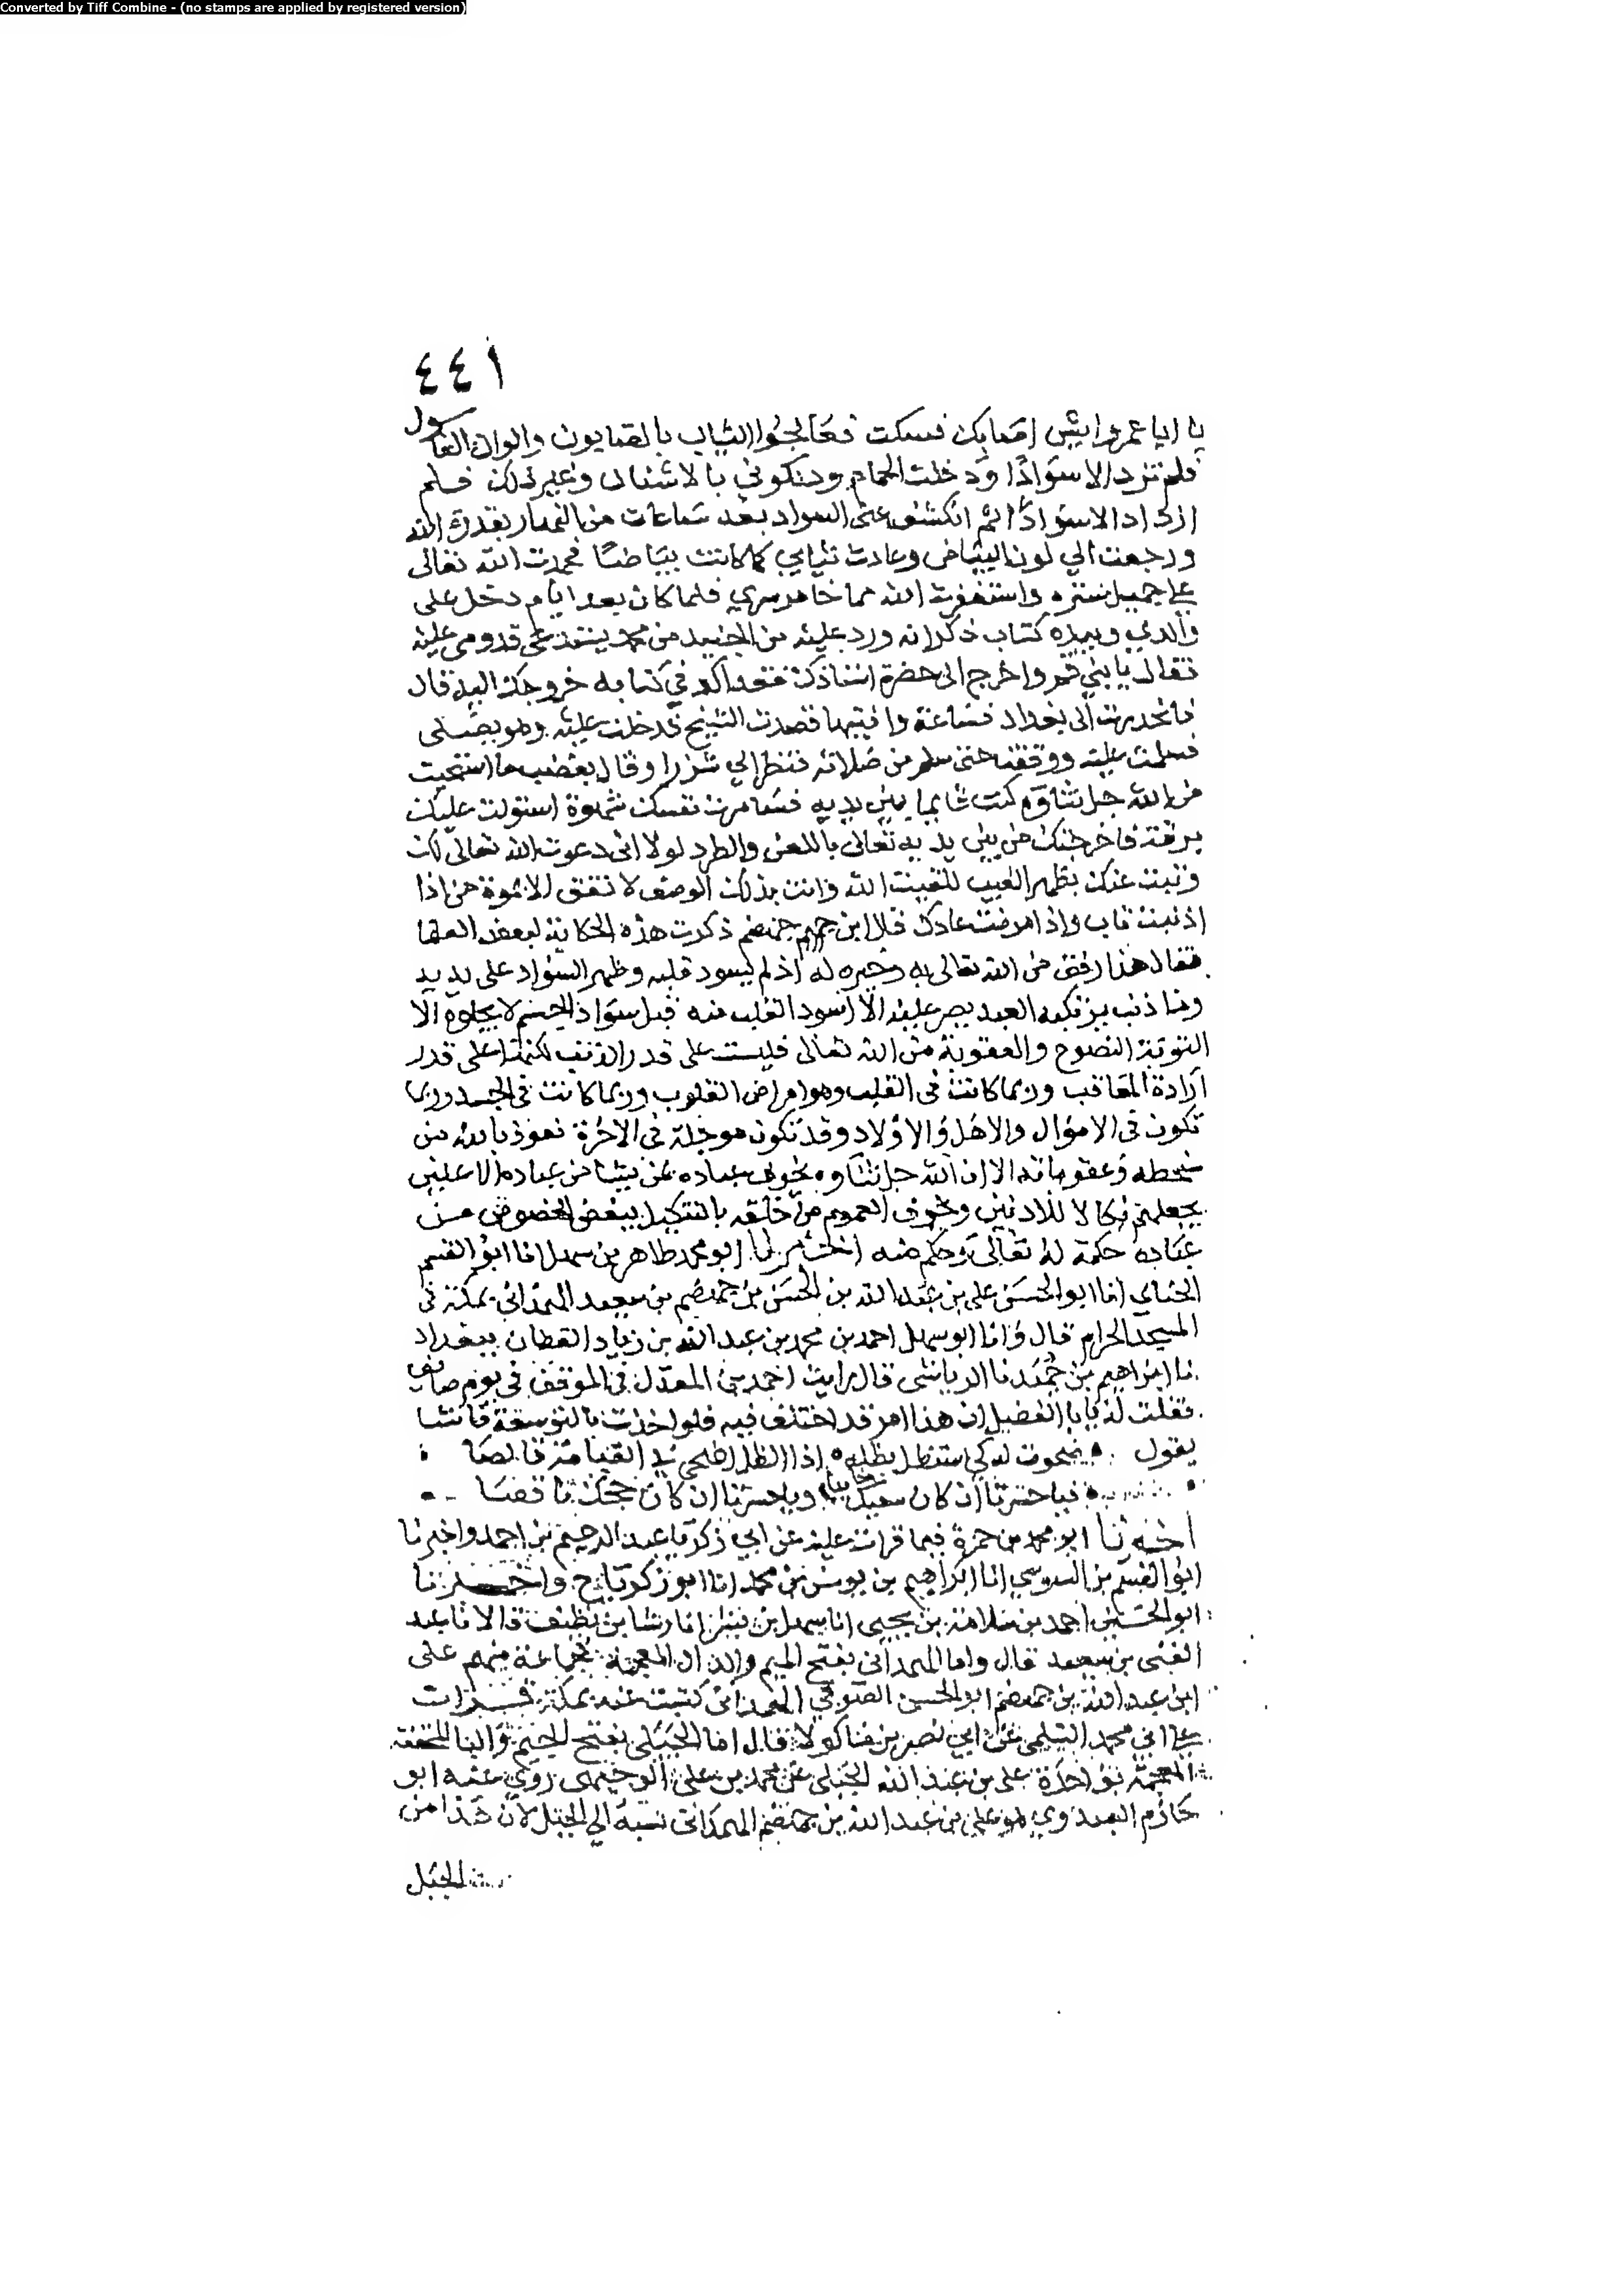 Converted by Tiff Combine - (no stamps are applied by registered version)
٤٤١
يا ابا عمرو ايش اصابك فسكت فعالجوا الثياب بالصابون والوان الغاسول
فلم تزد الا سوادا ودخلت الحمام ودلكوني بالاشنان وغير ذلك فلم
ازداد الا سوادا ثم انكشف عني السواد بعد ساعات من النهار بقدرة الله
ورجعت الي لون البياض وعادت ثيابي كما كانت بياضا فحمدت الله تعالى
على جميل ستره واستغفرت الله مما خامر سري فلما كان بعد ايام دخل على
والدي وبيده كتاب ذكر انه ورد عليه من الجنيد من محمد يستدعى قدومي عليه
فقال يا بني قم واخرج الى حضرة استاذك فقد اكد في كتابه خروجك اليه قال
فانحدرت الى بغداد فساعة وافيتها قصدت الشيخ فدخلت عليه وهو يصلى
فسلمت عليه ووقفت حتى سلم من صلاته فنظر الي شزرا وقال بغضب ما استحيت
من الله جل ثناؤه كنت قائما بين يديه فسامرت نفسك شهوة استولت عليك
برقة فاخرجتك من بين يديه تعالى باللعن والطرد لولا اني دعوت الله تعالى لك
وتبت عنك بظهر الغيب للقيت الله وانت بذلك الوصف لا تفق الاخوة من اذا
اذنبت تاب واذا مرضت عادك قال ابن جهضم ذكرت هذه الحكاية لبعض العلما
فقال هذا رفق من الله تعالى به وخيره له اذ لم يسود قلبه وظهر السواد على يديه
وما ذنب يرتكبه العبد يصر عليه الا اسود القلب منه قبل سواد الجسم لا يجلوه الا
التوبة النصوح والعقوبة من الله تعالى فليست على قدر الذنب لكنها على قدر
ارادة المعاقب وربما كانت في القلب وهو امراض القلوب وربما كانت في الجسد وربما
تكون في الاموال والاهل والاولاد وقد تكون موجلة في الاخرة نعوذ بالله من
سخطه وعقوباته الا ان الله جل ثناوه يخوف عباده بمن يشا من عباده الاعلين
يجعلهم نكالا للادنين ويخوف العموم من خلقه بالتنكيل ببعض الخصوص من
عباده حكمة له تعالى وحكم منه اخبرنا ابو محمد طاهر بن سهل انا ابو القسم
الحناي انا ابو الحسن علي بن عبد الله بن الحسن بن جهضم بن سعيد الهمذاني بمكة في
المسجد الحرام قال وانا ابو سهل احمد بن محمد بن عبد الله بن زياد القطان ببغداد
نا ابراهيم بن حميد نا الرياشى قال رايت احمد بن المعدل في الموقف في يوم صايف
فقلت له يا ابا الفضل ان هذا امر قد اختلف فيه فلو اخذت بالتوسعة فانشا
يقول ضحوت له كي استظل بظله اذا الظل اضحى في القيامة قالصا
فيا حسرتا ان كان سعيك خايبا ويا حسرتا ان كان حجك ناقصا
اخبرنا ابو محمد بن حمزة فيما قرات عليه عن ابي زكريا عبد الرحيم بن احمد واخبرنا
ابو القسم بن السوسي انا ابراهيم بن يونس بن محمد انا ابو زكريا ح واخبرنا
ابو الحسين احمد بن سلامة بن يحيى انا سهل بن بشر انا رشا بن نظيف قالا نا عبد
الغني بن سعيد قال واما الهمذاني بفتح الميم والذال المعجمة فجماعة منهم على
ابن عبد الله بن جهضم ابو الحسن الصوفي الهمذاني كتبت عنه بمكة قرات
على ابي محمد السلمي عن ابي نصر بن ماكولا قال اما الجبلي بفتح الجيم والبا المخففة
المعجمة بواحدة علي بن عبد الله الجبلي عن محمد بن علي الوجيهى روي عنه ابو
حازم العبدوي هو علي بن عبد الله بن جهضم الهمذاني نسبه الي الجبل لان همذان من
الجبل